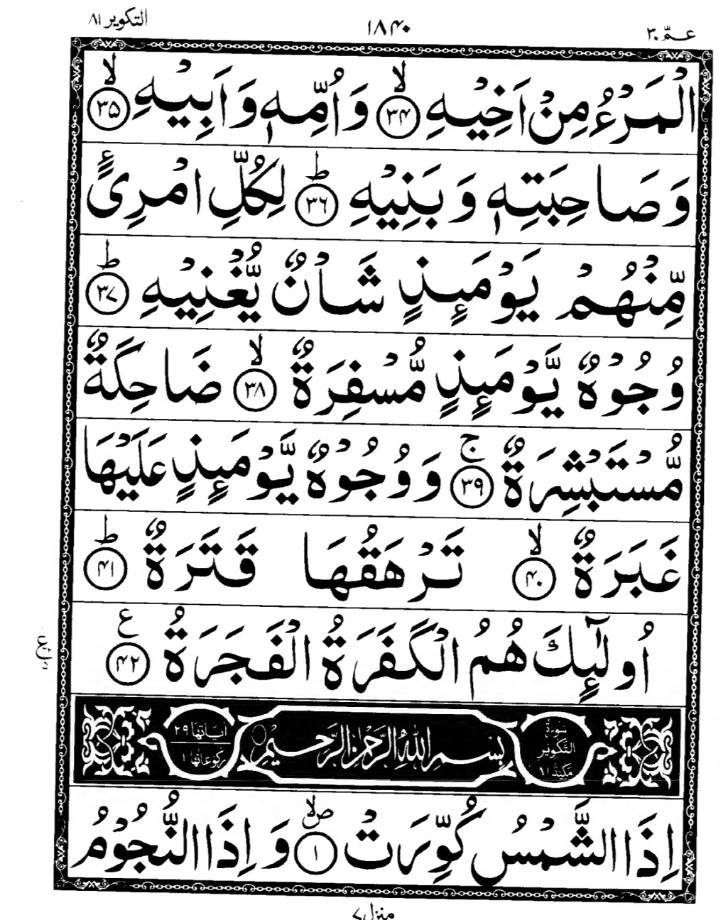 عـمّ ٣٠ ١٨٤٠ التكوير ٨١
الْمَرْءُ مِنْ اَخِيْهِ ۙ﴿٣٤﴾ وَاُمِّهٖ وَاَبِيْهِ ۙ﴿٣٥﴾
وَصَاحِبَتِهٖ وَبَنِيْهِ ؕ﴿٣٦﴾ لِكُلِّ امْرِئٍ
مِّنْهُمْ يَوْمَئِذٍ شَاْنٌ يُّغْنِيْهِ ؕ﴿٣٧﴾
وُجُوْهٌ يَّوْمَئِذٍ مُّسْفِرَةٌ ۙ﴿٣٨﴾ ضَاحِكَةٌ
مُّسْتَبْشِرَةٌ ۚ﴿٣٩﴾ وَوُجُوْهٌ يَّوْمَئِذٍ عَلَيْهَا
غَبَرَةٌ ۙ﴿٤٠﴾ تَرْهَقُهَا قَتَرَةٌ ؕ﴿٤١﴾
اُولٰٓئِكَ هُمُ الْكَفَرَةُ الْفَجَرَةُ ﴿٤٢﴾ ع
سورة التكوير مكية ١١ بسم الله الرحمن الرحيم اٰياتها ٢٩ ركوعاتها ١
اِذَا الشَّمْسُ كُوِّرَتْ ۪ۙ﴿١﴾ وَاِذَا النُّجُوْمُ
منزل ٧